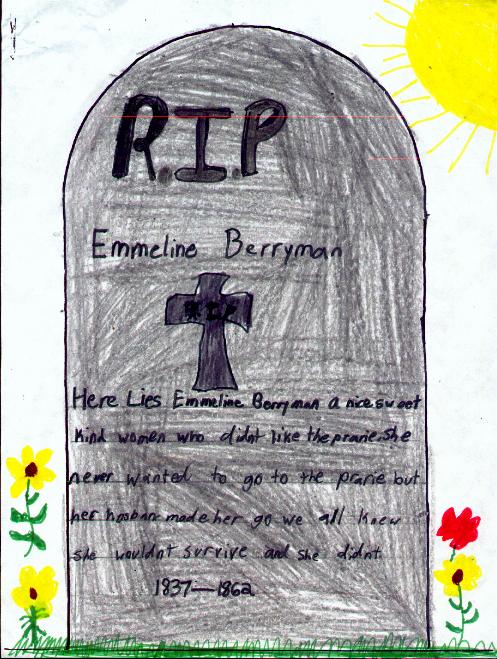 R.I.P
Emmeline Berryman
RIP
Here Lies Emmeline Berryman a nice sweet
kind women who didnt like the prarie. She
never wanted to go to the prarie but
her hosban made her go we all knew
she wouldnt survive and she didnt.
1837—1862